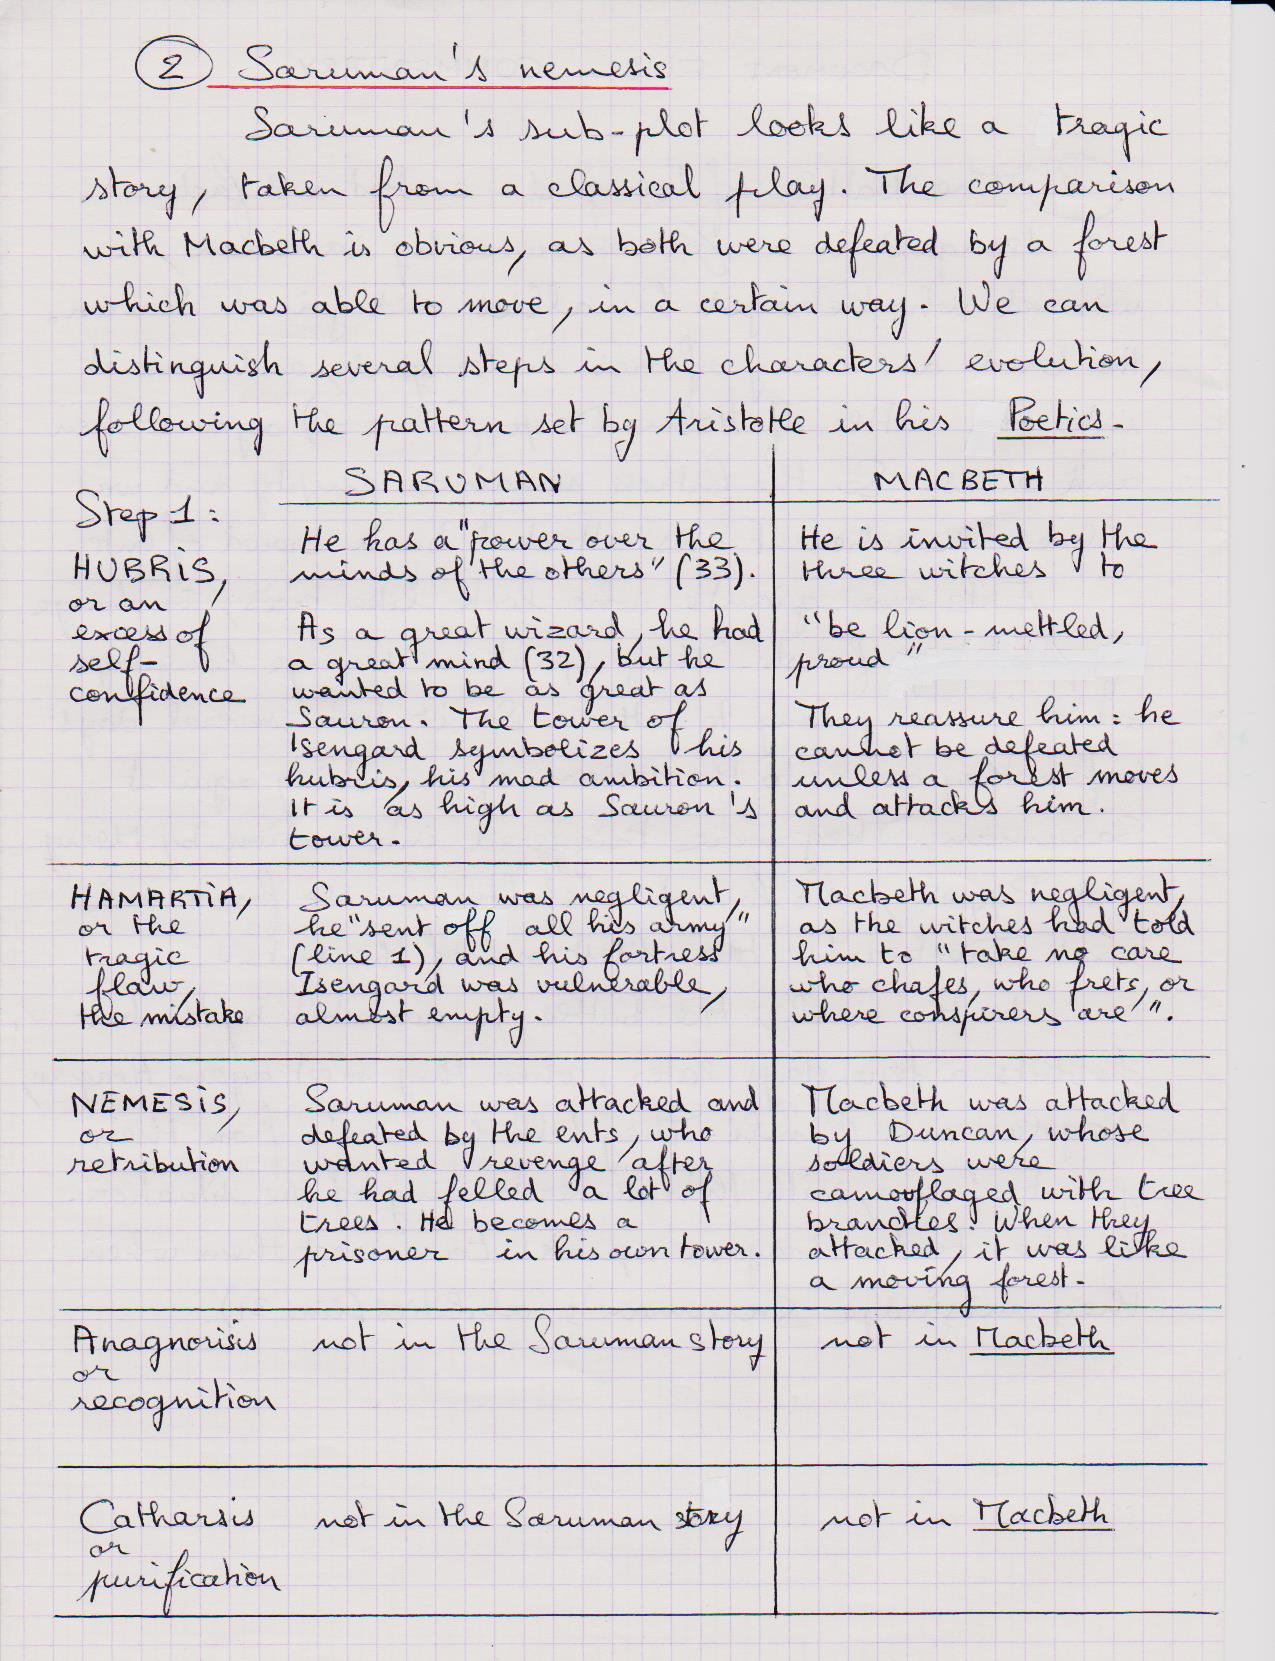 2 Saruman's nemesis
Saruman's sub-plot looks like a tragic
story, taken from a classical play. The comparison
with Macbeth is obvious, as both were defeated by a forest
which was able to move, in a certain way. We can
distinguish several steps in the characters' evolution,
following the pattern set by Aristotle in his Poetics.
SARUMAN
MACBETH
Step 1:
HUBRIS,
or an
excess of
self-
confidence
He has a "power over the
minds of the others" (33).
As a great wizard, he had
a great mind (32), but he
wanted to be as great as
Sauron. The tower of
Isengard symbolizes his
hubris, his mad ambition.
It is as high as Sauron's
tower.
He is invited by the
three witches to
"be lion-mettled,
proud"
They reassure him: he
cannot be defeated
unless a forest moves
and attacks him.
HAMARTIA,
or the
tragic
flaw,
the mistake
Saruman was negligent,
he "sent off all his army"
(line 1), and his fortress
Isengard was vulnerable,
almost empty.
Macbeth was negligent,
as the witches had told
him to "take no care
who chafes, who frets, or
where conspirers are".
NEMESIS,
or
retribution
Saruman was attacked and
defeated by the ents, who
wanted revenge after
he had felled a lot of
trees. He becomes a
prisoner in his own tower.
Macbeth was attacked
by Duncan, whose
soldiers were
camouflaged with tree
branches. When they
attacked, it was like
a moving forest.
Anagnorisis
or
recognition
not in the Saruman story
not in Macbeth
Catharsis
or
purification
not in the Saruman story
not in Macbeth